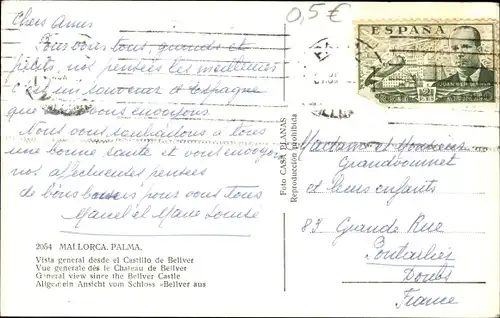 0,5 €
Chers Amis
Pour vous tous, grands et
petits, nos pensées les meilleures
C'est un souvenir d'Espagne
que nous vous envoyons.
Nous vous souhaitons à tous
une bonne santé et vous envoyons
nos affectueuses pensées
de bons baisers pour vous tous
Marcel et Marie Louise
2054 MALLORCA. PALMA.
Vista general desde el Castillo de Bellver
Vue generale dès le Chateau de Bellver
General view since the Bellver Castle
Allgemein Ansicht vom Schloss «Bellver aus
Foto CASA PLANAS
Reproducción prohibida
ESPAÑA
JUAN DE LA CIERVA
Madame et Monsieur
Grandvoinnet
et leurs enfants
83 Grande Rue
Pontarlier
Doubs
France